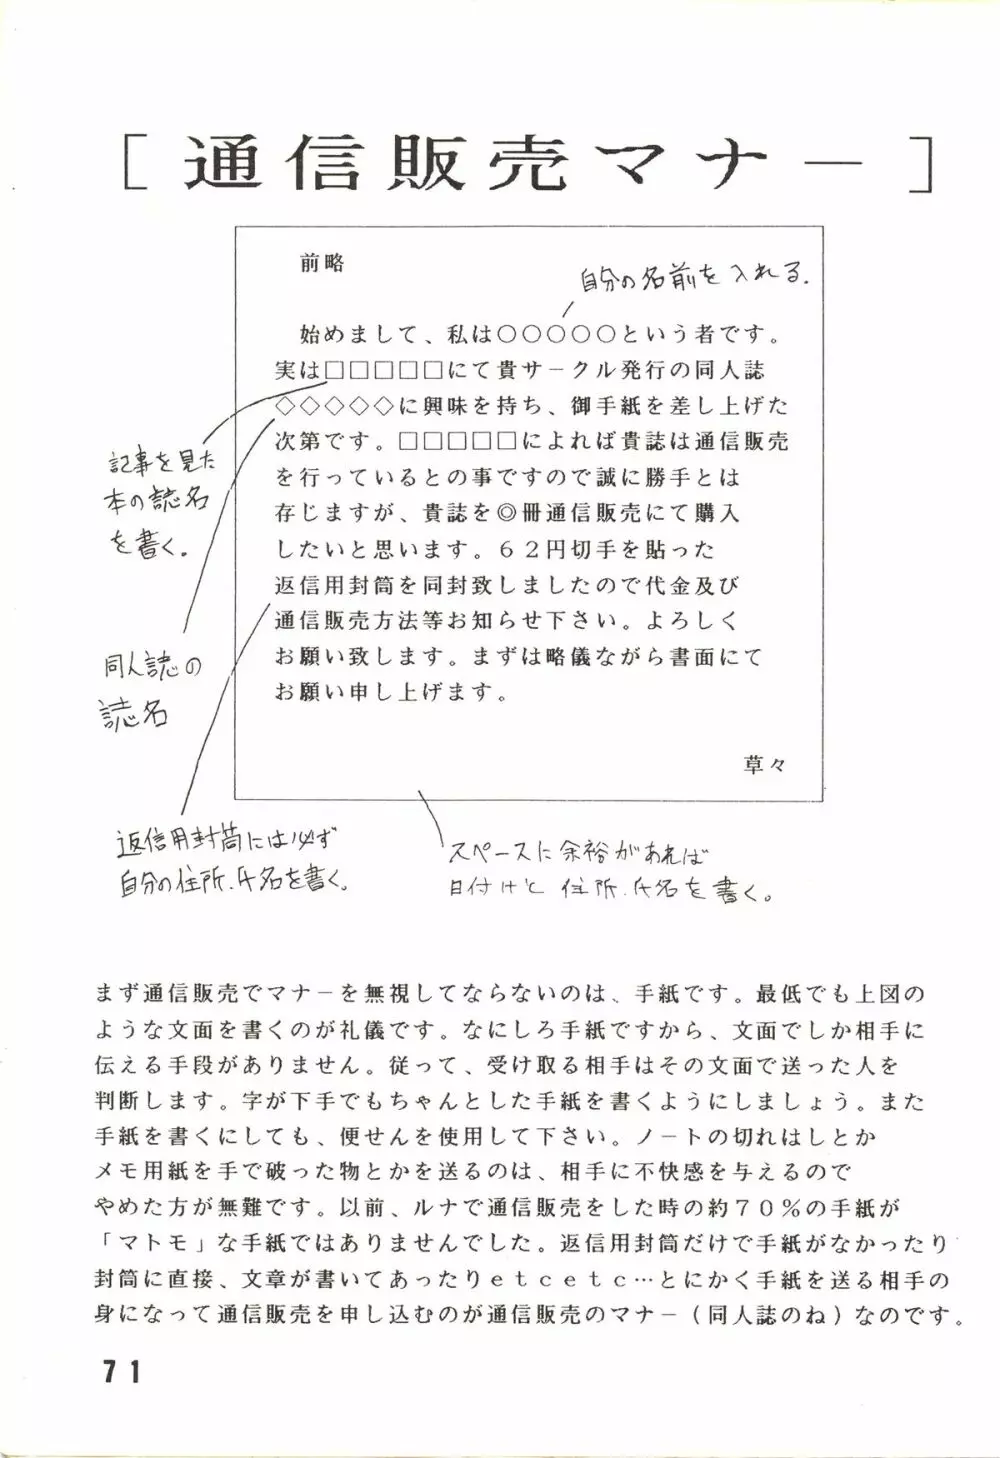 [ 通信販売マナー ]
前略
自分の名前を入れる.
始めまして、私は○○○○○という者です。
実は□□□□□にて貴サークル発行の同人誌
◇◇◇◇◇に興味を持ち、御手紙を差し上げた
次第です。□□□□□によれば貴誌は通信販売
を行っているとの事ですので誠に勝手とは
存じますが、貴誌を◎冊通信販売にて購入
したいと思います。６２円切手を貼った
返信用封筒を同封致しましたので代金及び
通信販売方法等お知らせ下さい。よろしく
お願い致します。まずは略儀ながら書面にて
お願い申し上げます。
草々
記事を見た
本の誌名
を書く。
同人誌の
誌名
返信用封筒には必ず
自分の住所.氏名を書く。
スペースに余裕があれば
日付けと住所.氏名を書く。
まず通信販売でマナーを無視してならないのは、手紙です。最低でも上図の
ような文面を書くのが礼儀です。なにしろ手紙ですから、文面でしか相手に
伝える手段がありません。従って、受け取る相手はその文面で送った人を
判断します。字が下手でもちゃんとした手紙を書くようにしましょう。また
手紙を書くにしても、便せんを使用して下さい。ノートの切れはしとか
メモ用紙を手で破った物とかを送るのは、相手に不快感を与えるので
やめた方が無難です。以前、ルナで通信販売をした時の約７０％の手紙が
「マトモ」な手紙ではありませんでした。返信用封筒だけで手紙がなかったり
封筒に直接、文章が書いてあったりｅｔｃｅｔｃ…とにかく手紙を送る相手の
身になって通信販売を申し込むのが通信販売のマナー（同人誌のね）なのです。
71